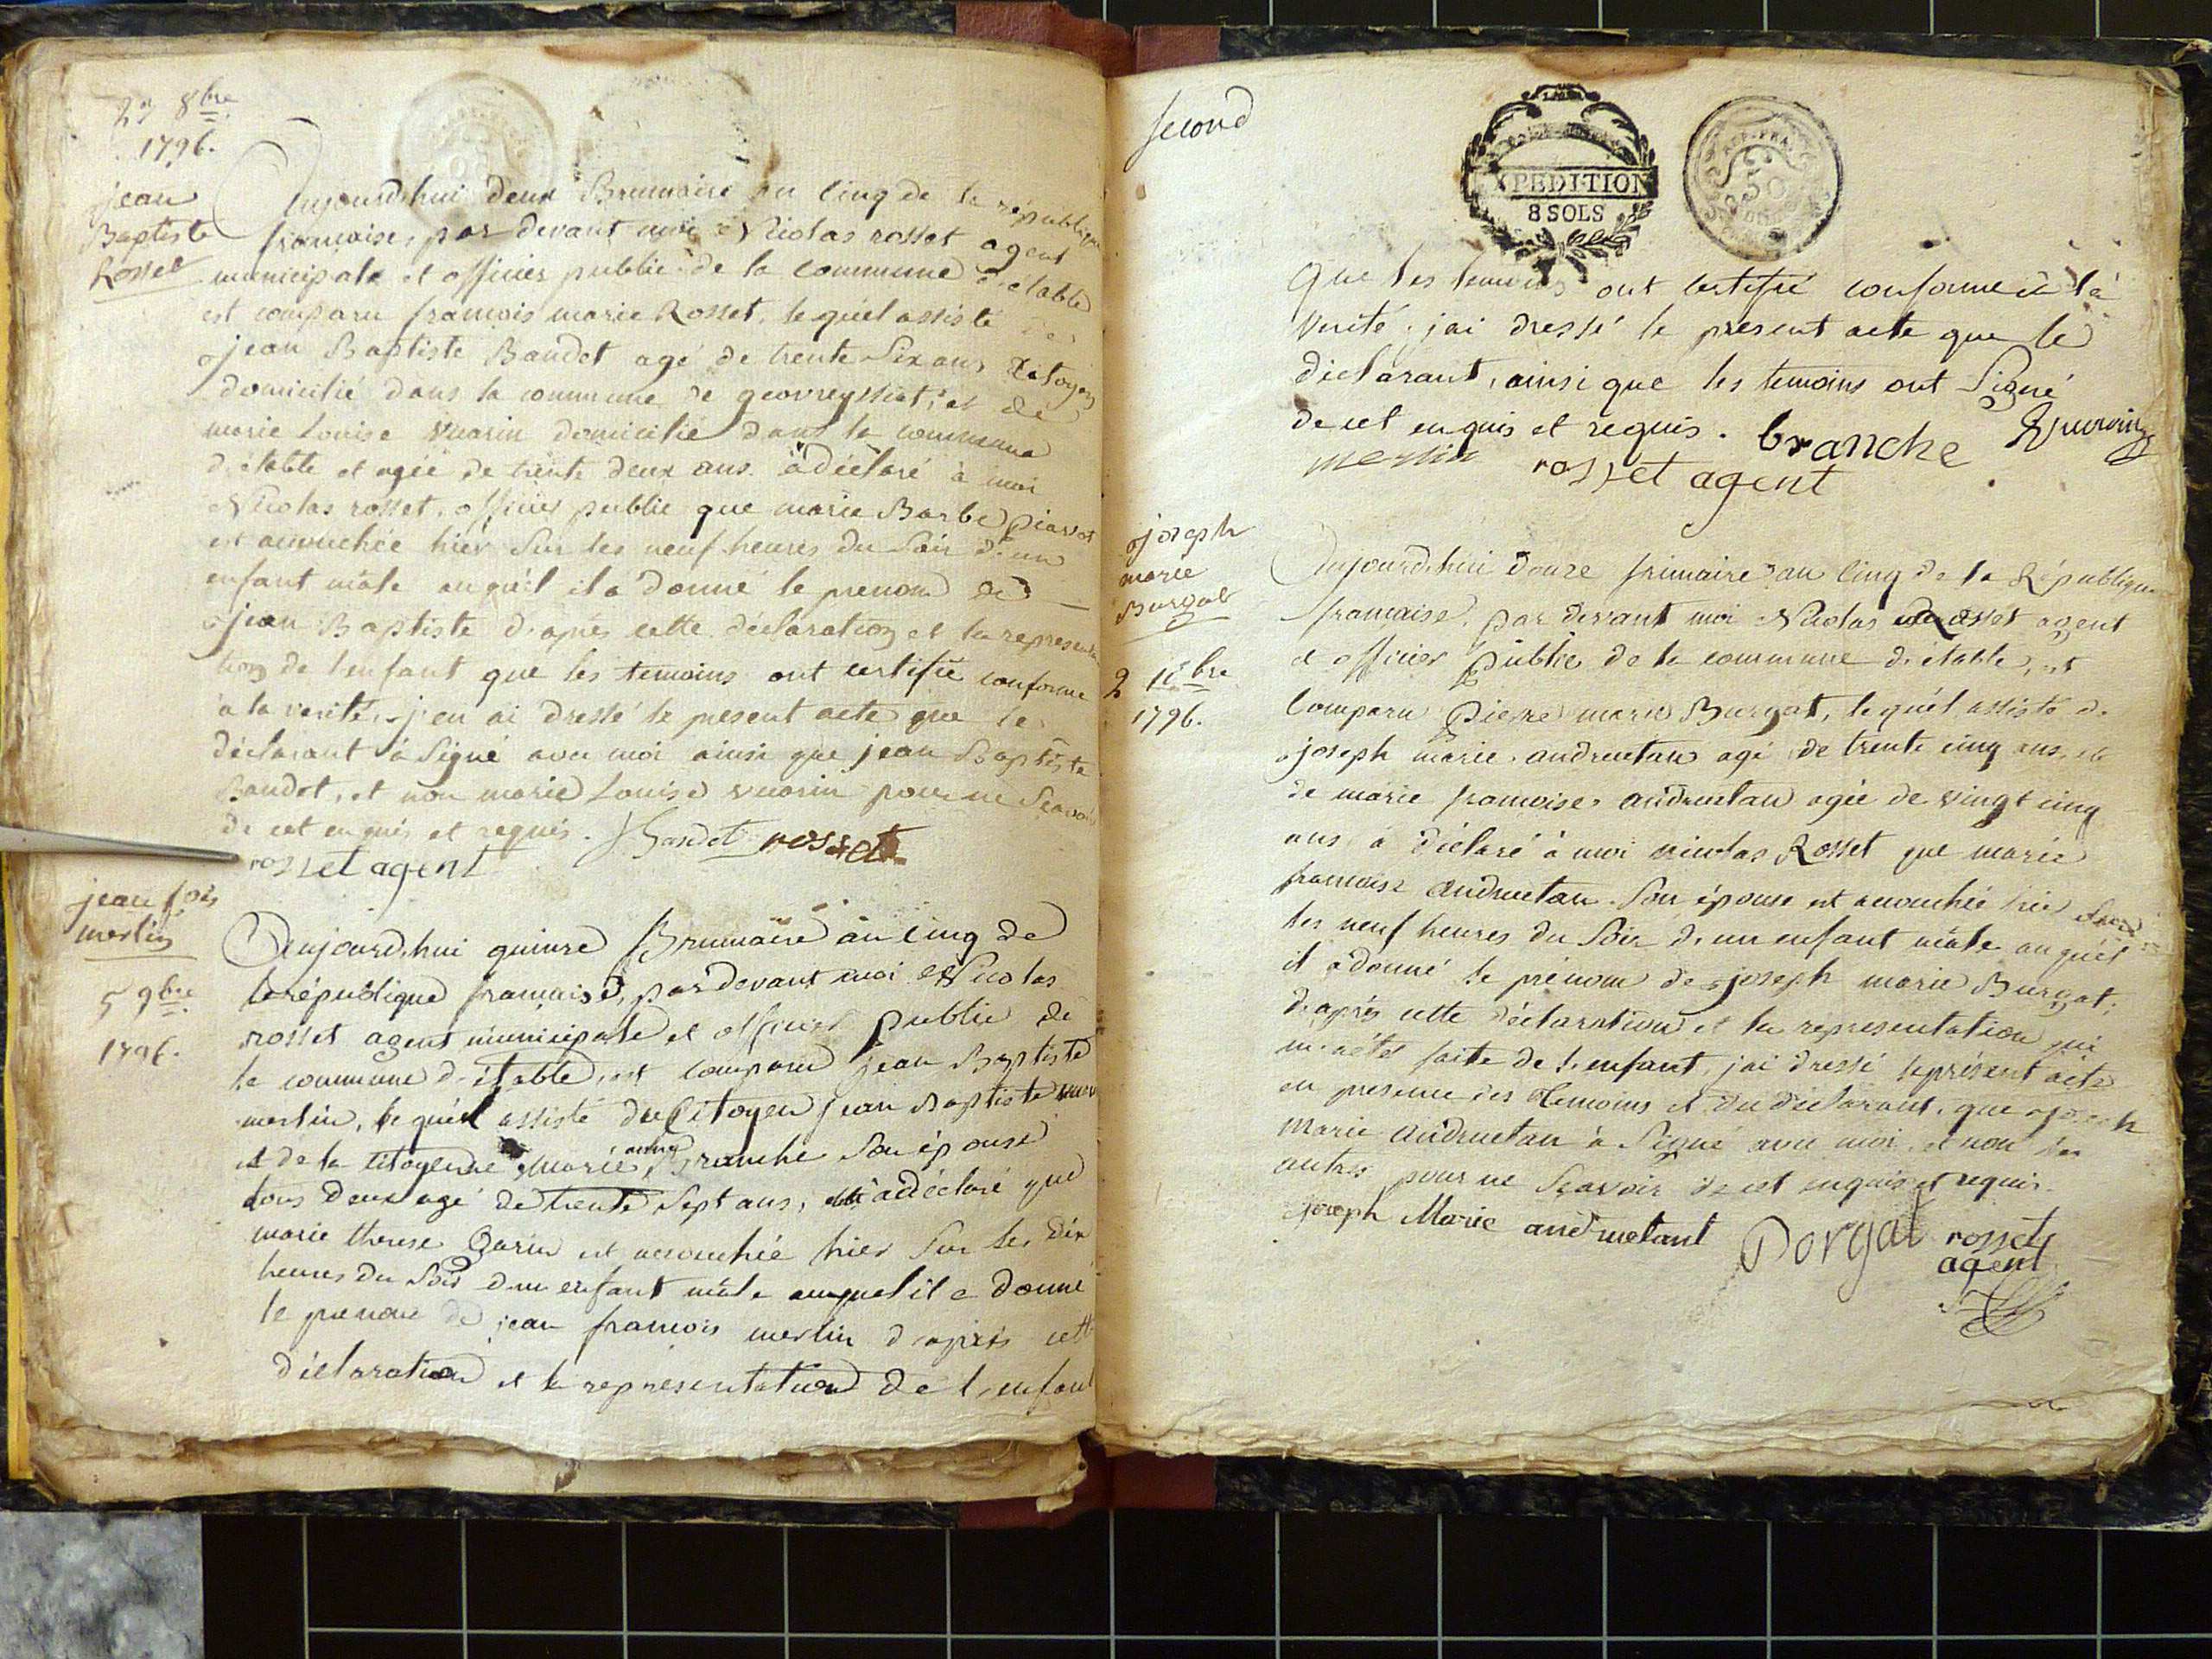 23 8bre
1796.
jean
Baptiste
Rosset
Aujourd'hui deux Brumaire an cinq de la république
francoise, par devant moi Nicolas rosset agent
municipale et officier public de la commune d'étable
est comparu francois marie Rosset, lequel assisté de
jean Baptiste Baudet agé de trente six ans citoyen
domicilié dans la commune de geovreyssiat, et de
marie Louise vuarin domicilié dans la commune
d'étable et agée de trente deux ans. à déclaré à moi
Nicolas rosset, officier public que marie Barbe
est accouchée hier sur les neuf heures du soir d'un
enfant mâle auquel il a donné le prenom de
jean Baptiste d'après cette déclaration et la represen
tion de l'enfant que les temoins ont certifié conforme
à la verité, j'en ai dressé le present acte que le
déclarant à signé avec moi ainsi que jean Baptiste
Baudet, et non marie Louise vuarin pour ne scavoir
de cet enquis et requis. Baudet rosset
rosset agent
jean fois
merlin
5 9bre
1796.
Aujourd'hui quinze Brumaire an cinq de
la république francaise, par devant moi Nicolas
rosset agent municipale et officier public de
la commune d'étable, est comparu jean Baptiste
merlin, lequel assisté du Citoyen jean Baptiste
et de la citoyenne marie Branche son épouse
tous deux agé de trente sept ans, a déclaré que
marie therese est accouchée hier sur les dix
heures du soir d'un enfant mâle auquel il a donné
le prenom de jean francois merlin d'après cette
déclaration et la representation de l'enfant
second
EXPEDITION
8 SOLS
REP. FRA.
50
que les temoins ont certifié conforme à la
verité, jai dressé le present acte que le
déclarant, ainsi que les temoins ont signé
de cet enquis et requis. branche Vuarin
merlin rosset agent
joseph
marie
Burgat
2 10bre
1796.
Aujourd'hui douze frimaire an cinq de la République
francaise. par devant moi Nicolas Rosset agent
et officier public de la commune d'étable, est
comparu Pierre marie Burgat, lequel assisté de
joseph marie andruetan agé de trente cinq ans, et
de marie francoise andruetan agée de vingt cinq
ans, à déclaré à moi nicolas Rosset que marie
francoise andruetan son épouse est accouchée hier sur
les neuf heures du soir d'un enfant mâle auquel
il à donné le prénom de joseph marie Burgat.
d'après cette déclaration et la representation qui
m'a été faite de l'enfant, jai dressé le présent acte
en presence des temoins et du déclarant, que joseph
marie andruetan à signé avec moi, et non les
autres pour ne scavoir de cet enquis et requis.
joseph Marie andruetant Porgat rosset
agent